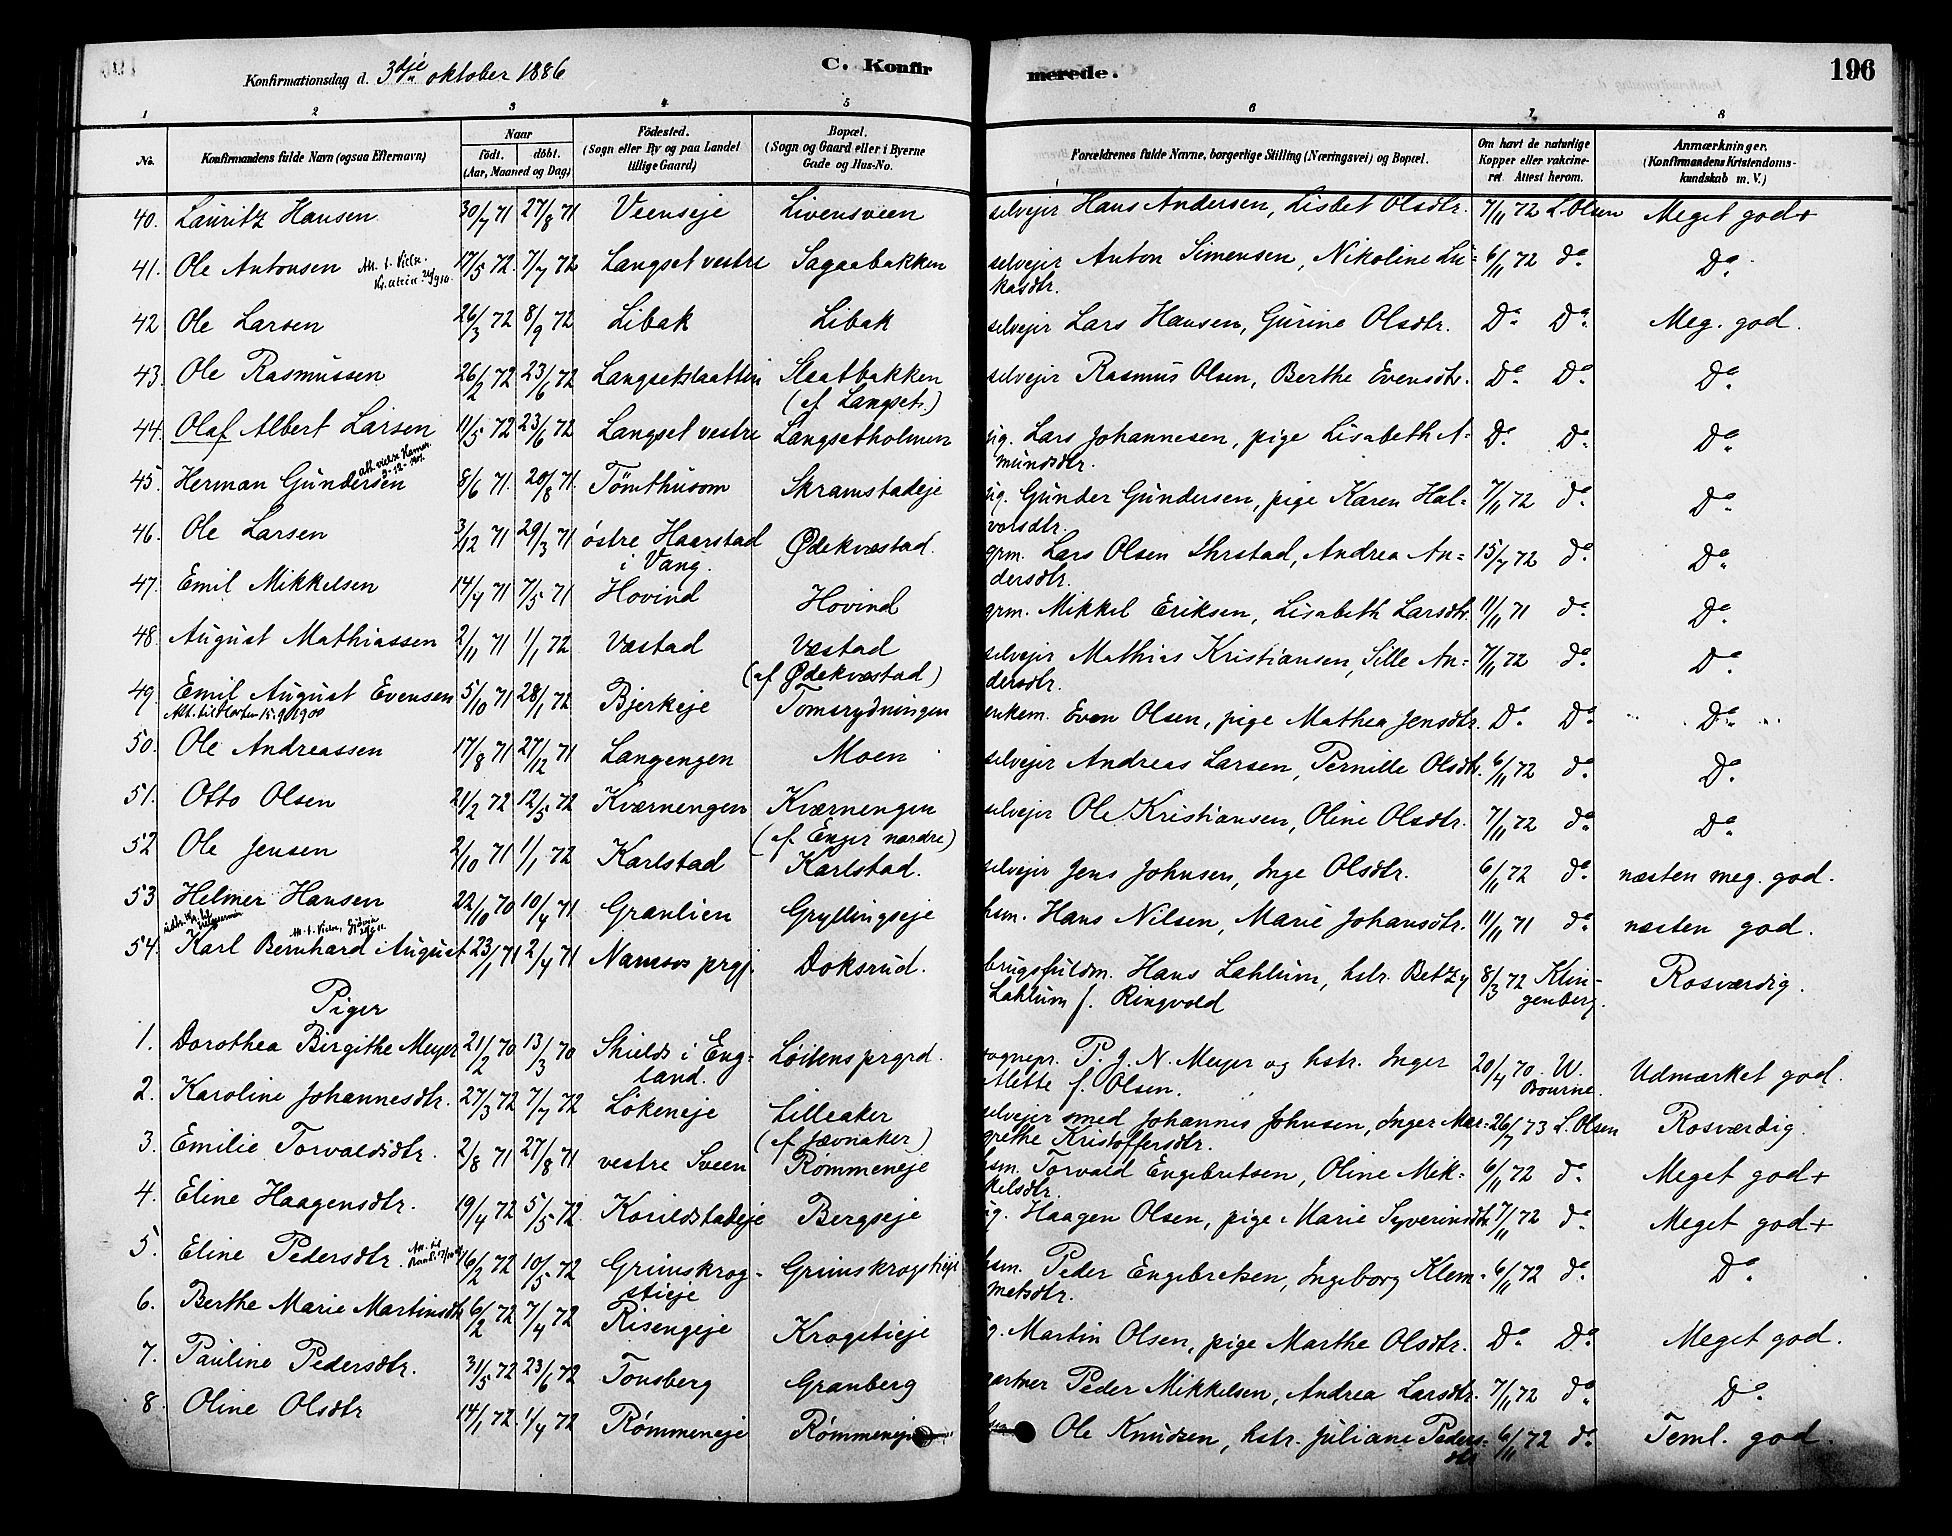 Konfirmationsdag d. 3dje oktober 1886
C. Konfirmerede.
196
1 2 3 4 5 6 7 8
No.
Konfirmandens fulde Navn (ogsaa Efternavn)
Naar
födt. döbt.
(Aar, Maaned og Dag)
Födested.
(Sogn eller By og paa Landet
tillige Gaard)
Bopæl.
(Sogn og Gaard eller i Byerne
Gade og Hus-No.
Forældrenes fulde Navne, borgerlige Stilling (Næringsvei) og Bopæl.
Om havt de naturlige
Kopper eller vakcine-
ret. Attest herom.
Anmærkninger.
(Konfirmandens Kristendoms-
kundskab m. V.)
40. Lauritz Hansen 30/7 71 27/8 71 Veenseje Livensveen selvejer Hans Andersen, Lisbet Olsdtr. 7/11 72 L. Olsen Meget god+
41. Ole Antonsen 17/5 72. 7/7 72 Langset vestre Sagaabakken selvejer Anton Simensen, Nikoline Lu- 6/11 72 do. Do.
kasdtr.
42 Ole Larsen 26/3 72 8/9 72 Libak Libak selvejer Lars Hansen, Gurine Olsdtr. Do. Do. Meg. god.
43. Ole Rasmussen 26/2 72 23/6 72 Langsetslaatten Slaatbakken selvejer Rasmus Olsen, Berthe Evensdtr. Do. Do. Do.
(af Langset.)
44. Olaf Albert Larsen 11/5 72 23/6 72 Langset vestre Langsetholmen ug. Lars Johannesen, pige Lisabeth A- Do. Do. Do.
mundsdtr.
45. Herman Gundersen 8/6 71. 20/8 71. Tömthusom Skramstadeje ug. Gunder Gundersen, pige Karen Hal- 7/11 72 do. Do.
vorsdtr.
46. Ole Larsen 3/12 71 29/3 71 östre Haarstad Ødekvæstad. grm. Lars Olsen Ihrstad, Andrea An- 15/7 72 do. Do.
i Vang. dersdtr.
47. Emil Mikkelsen 14/4 71 7/5 71 Hovind Hovind grm. Mikkel Eriksen, Lisabeth Larsdtr. 11/11 71 do. Do.
48. August Mathiassen 2/11 71 1/1 72 Væstad Væstad selvejer Mathias Kristiansen, Sille An- 7/11 72 do. Do.
(af Ødekvæstad) dersdtr.
49. Emil August Evensen 5/10 71 28/1 72 Bjerkeje Tomsrydningen enkem. Even Olsen, pige Mathea Jensdtr. Do. Do. Do.
Att. til Horten 15.9.1900
50. Ole Andreassen 17/8 71 27/12 71 Langengen Moen selvejer Andreas Larsen, Pernille Olsdtr. 6/11 72 do. Do.
51. Otto Olsen 21/2 72 12/5 72 Kværnengen Kværnengen selvejer Ole Kristiansen, Oline Olsdtr. 7/11 72 do. Do.
(af Enger nordre)
52 Ole Jensen 2/10 71 1/1 72 Karlstad Karlstad. selvejer Jens Johnsen, Inge Olsdtr. 6/11 72 do. næsten meg. god.
53 Helmer Hansen 22/10 70 10/4 71 Granlien Gryllingseje hsm. Hans Nilsen, Marie Johansdtr. 11/11 71 do. næsten god.
54. Karl Bernhard August 23/1 71 2/4 71 Namsos prgj. Doksrud. brugsfuldm. Hans Lahlum, hstr. Betzy 8/3 72 Klin- Rosværdig.
Lahlum f. Ringvold genberg.
Piger
1. Dorothea Birgithe Meyer 21/2 70 13/3 70 Shields i Eng- Löitens prgrd. sognepr. P. J. N. Meyer og hstr. Inger 20/4 70. W. Udmærket god.
land. Mette f. Olsen. Bourne.
2. Karoline Johannesdtr. 27/3 72 7/7 72 Lökeneje Lilleaker selvejer smed Johannis Johnsen, Inger Mar- 26/7 73 L. Olsen Rosværdig.
(af Jævnaker) grethe Kristoffersdtr.
3. Emilie Torvaldsdtr. 2/8 71 27/8 71 vestre Sveen Rømmeneje hsm. Torvald Engebretsen, Oline Mik- 6/11 72 do. Meget god+
kelsdtr.
4. Eline Haagensdtr. 19/4 72 5/5 72. Korildstadeje Bergseje ug. Haagen Olsen, pige Marie Syverinsdtr 7/11 72 do. Meget god+
5. Eline Pedersdtr. 16/2 72 10/5 72 Grimskrog- Grimskrogstieje hsm. Peder Engebretsen, Ingeborg Klem- 6/11 72 do. Do.
stieje metsdtr.
6. Berthe Marie Martinsdtr 6/2 72 7/4 72 Risengeje Krogstieje ug. Martin Olsen, pige Marthe Olsdtr. Do. Do. Meget god.
7. Pauline Pedersdtr. 31/5 72 23/6 72 Tonsberg Granberg gartner Peder Mikkelsen, Andrea Larsdtr. 7/11 72 do. Do.
8. Oline Olsdtr 14/1 72. 1/4 72 Rømmeneje Rømmeneje hsm Ole Knudsen, hstr. Juliane Peders- 6/11 72 do. Teml. god.
dtr